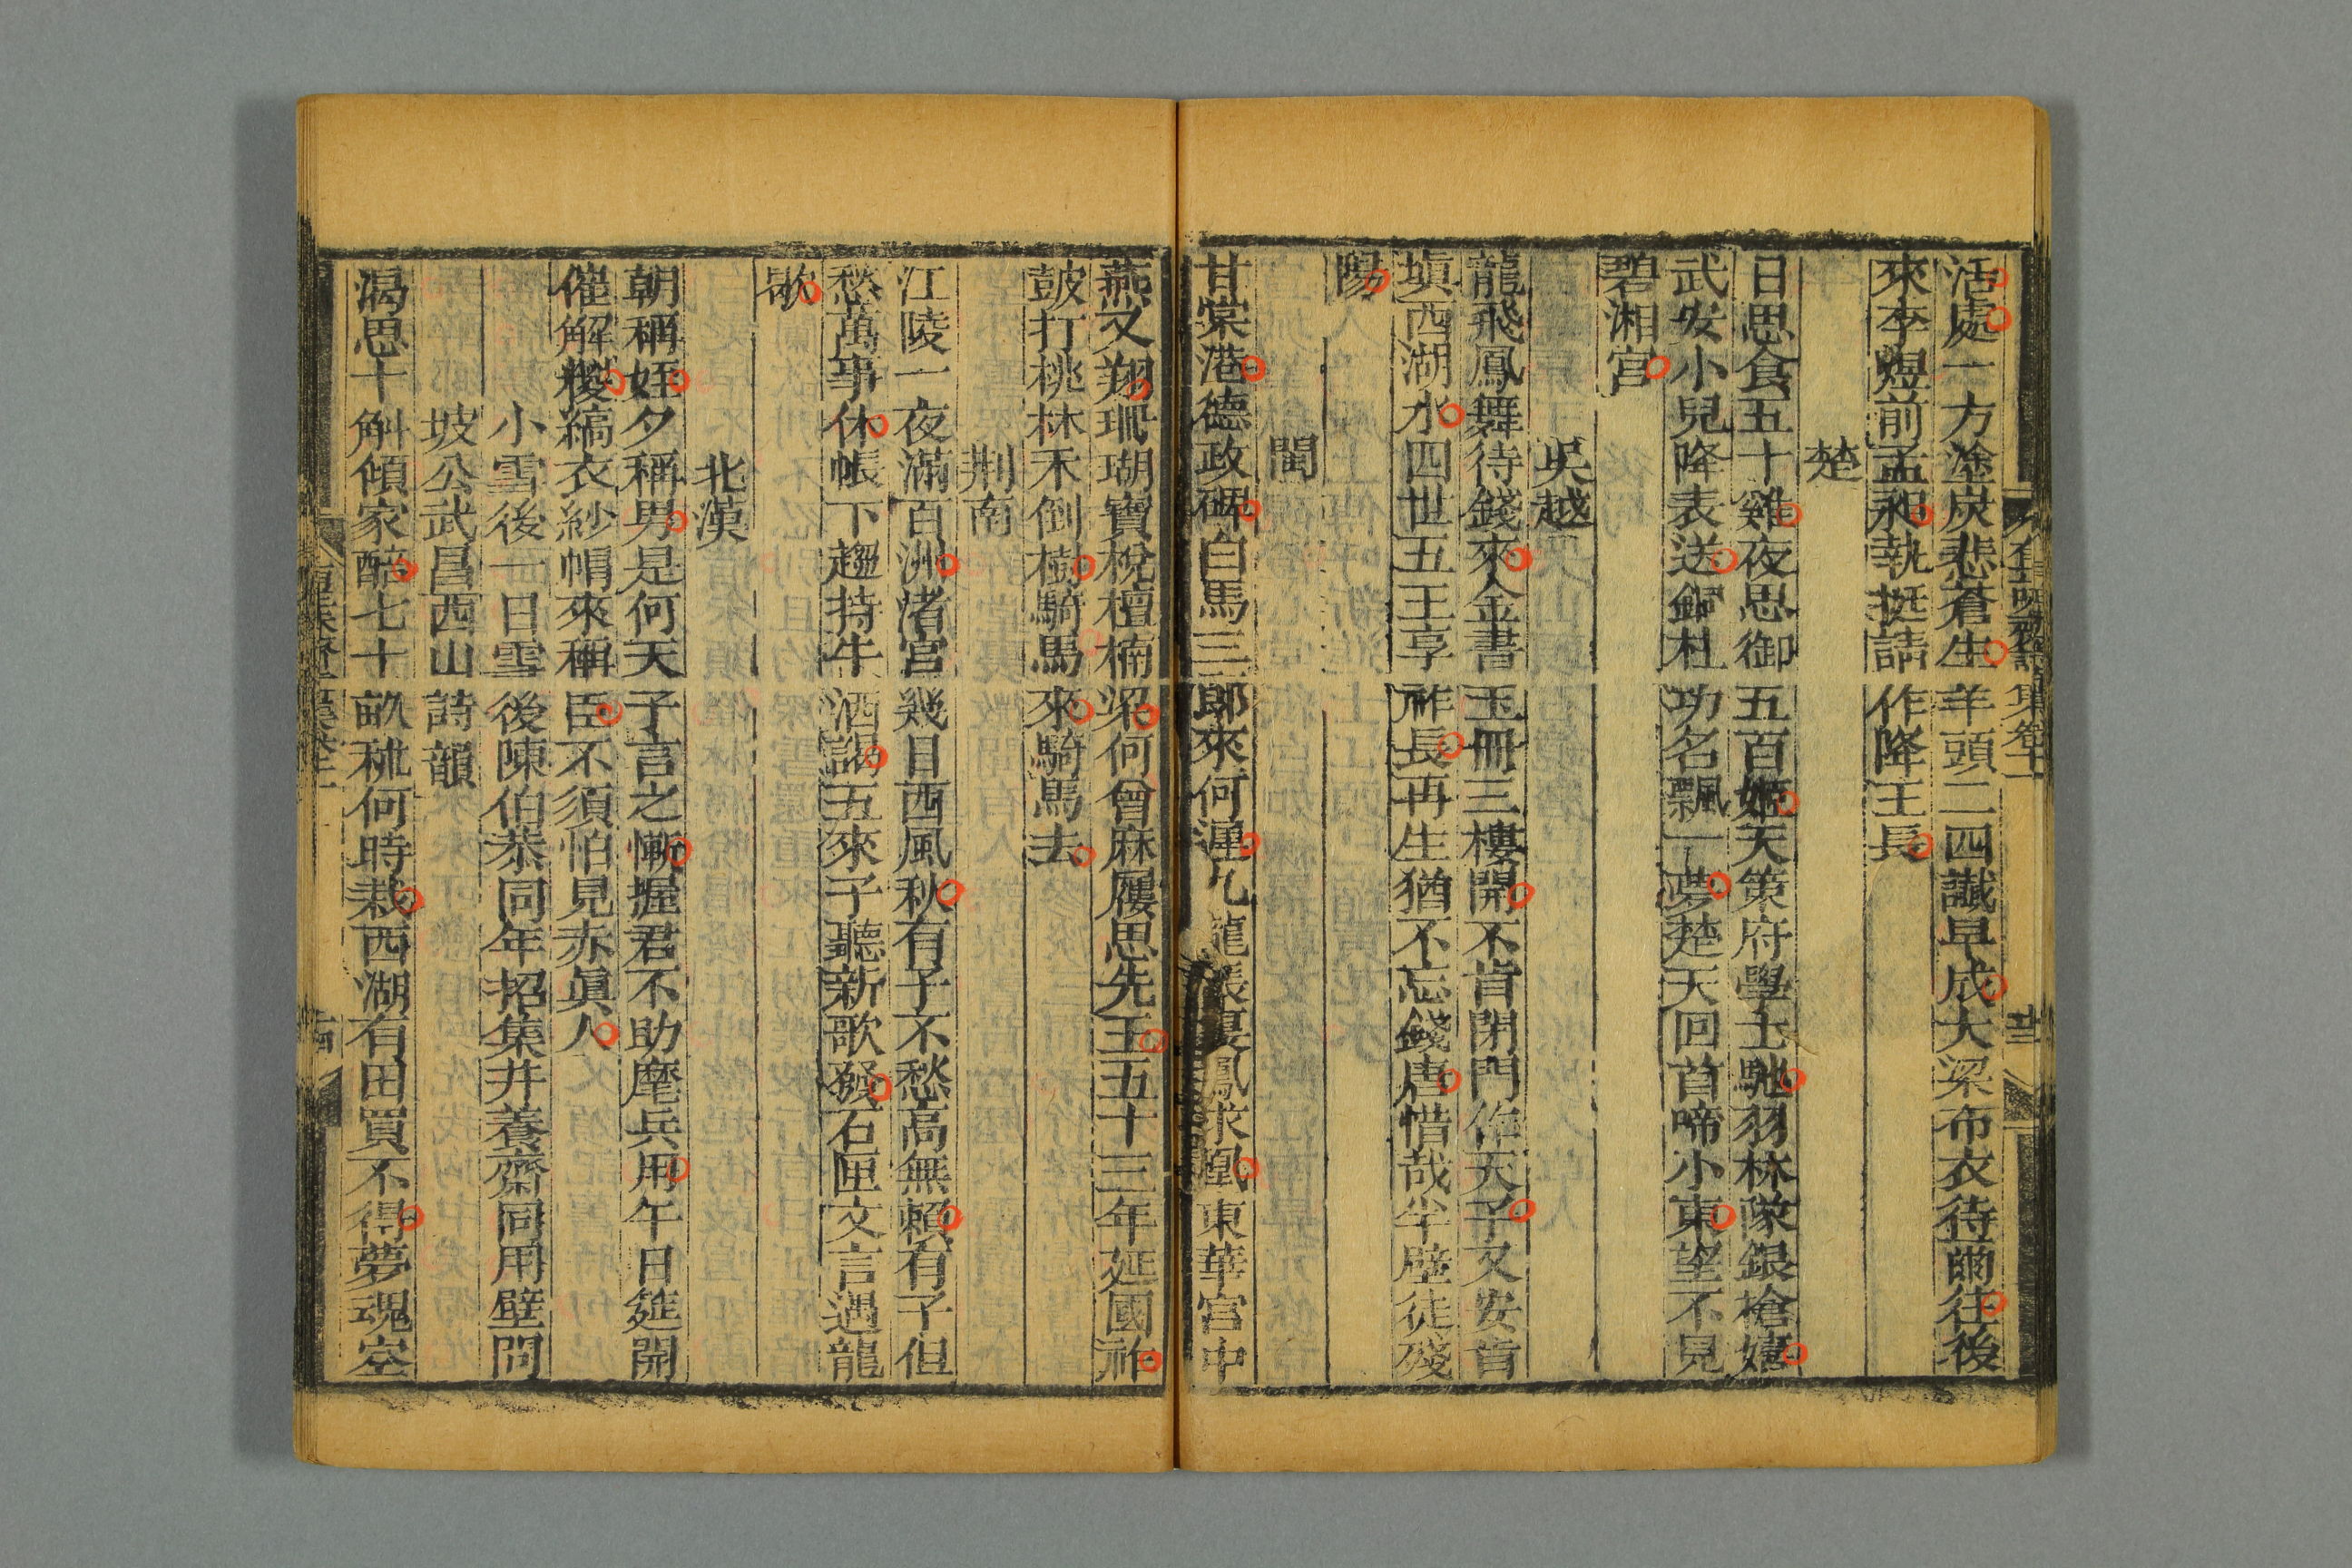 活處一方塗炭悲蒼生羊頭二四讖早成大梁布衣待爾往後
來李煜前孟昶執挺請作降王長
楚
日思食五十雞夜思御五百姬天策府學士馳羽林隊銀槍嬉
武安小兒降表送銅柱功名飄一夢楚天回首啼小東望不見
碧湘宮
吳越
龍飛鳳舞待錢來金書玉冊三樓開不肯閉門作天子又安肯
塡西湖水四世五王享祚長再生猶不忘錢唐惜哉半壁徒殘
陽
閩
甘棠港德政碑白馬三郎來何遲九龍帳裏鳳求凰東華宮中
燕又翔珊瑚寶梲檀楠梁何曾麻屨思先王五十三年延國祚
鼓打桃林禾倒樹騎馬來騎馬去
荆南
江陵一夜滿百洲渚宮幾日西風秋有子不愁高無賴有子但
愁萬事休帳下趨持牛酒謁五來子聽新歌發石匣文言遇龍
歇
北漢
朝稱姪夕稱男是何天子言之慚握君不助麾兵用午日筵開
催解糉縞衣紗帽來稱臣不須怕見赤眞人
小雪後一日雪後陳伯恭同年招集井養齋同用壁間
坡公武昌西山詩韻
渴思十斛傾家醅七十畝秫何時栽西湖有田買不得夢魂空